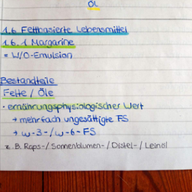 ÖL
1.6. Fettbasierte Lebensmittel
1.6.1 Margarine
= W/O-Emulsion
Bestandteile
Fette / Öle
- ernährungsphysiologischer Wert
→ mehrfach ungesättigte FS
→ w-3-/w-6-FS
z.B. Raps-/Sonnenblumen-/Distel-/Leinöl